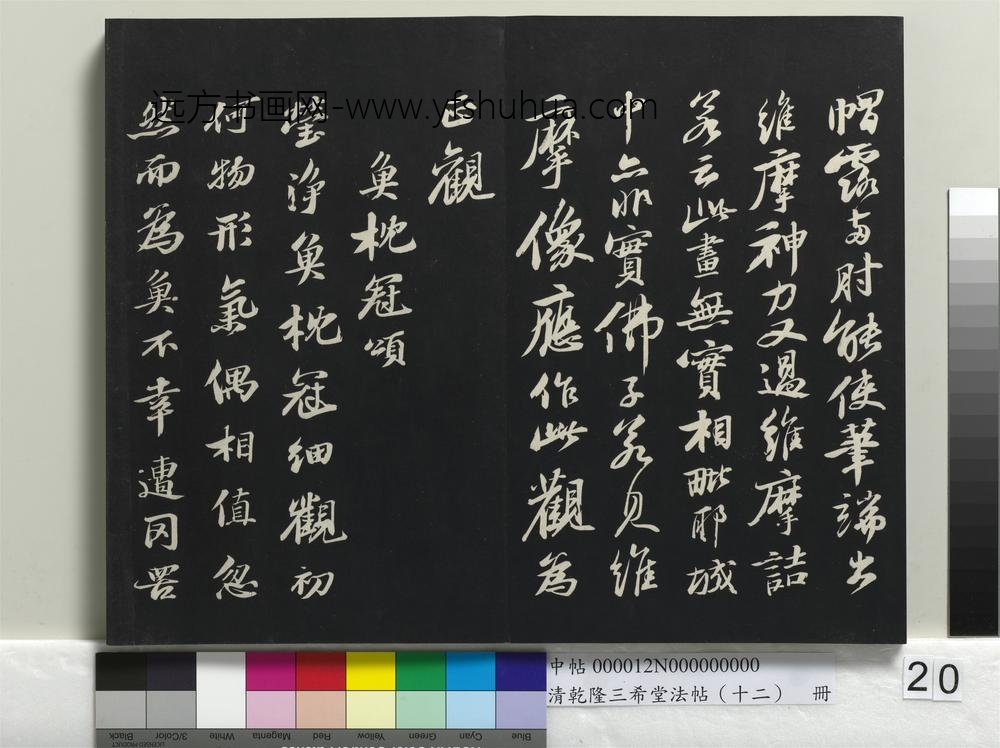 帽露兩肘能使筆端出
維摩神力又過維摩詰
若云此畫無實相毗耶城
中亦非實佛子若見維
摩像應作此觀為
正觀
魚枕冠頌
瑩淨魚枕冠細觀初
何物形氣偶相值忽
然而為魚不幸遭罔罟
远方书画网-www.yfshuhua.com
中帖 000012N000000000
清乾隆三希堂法帖（十二） 冊
20
Black
3/Color
White
Magenta
Red
Yellow
Green
Cyan
Blue